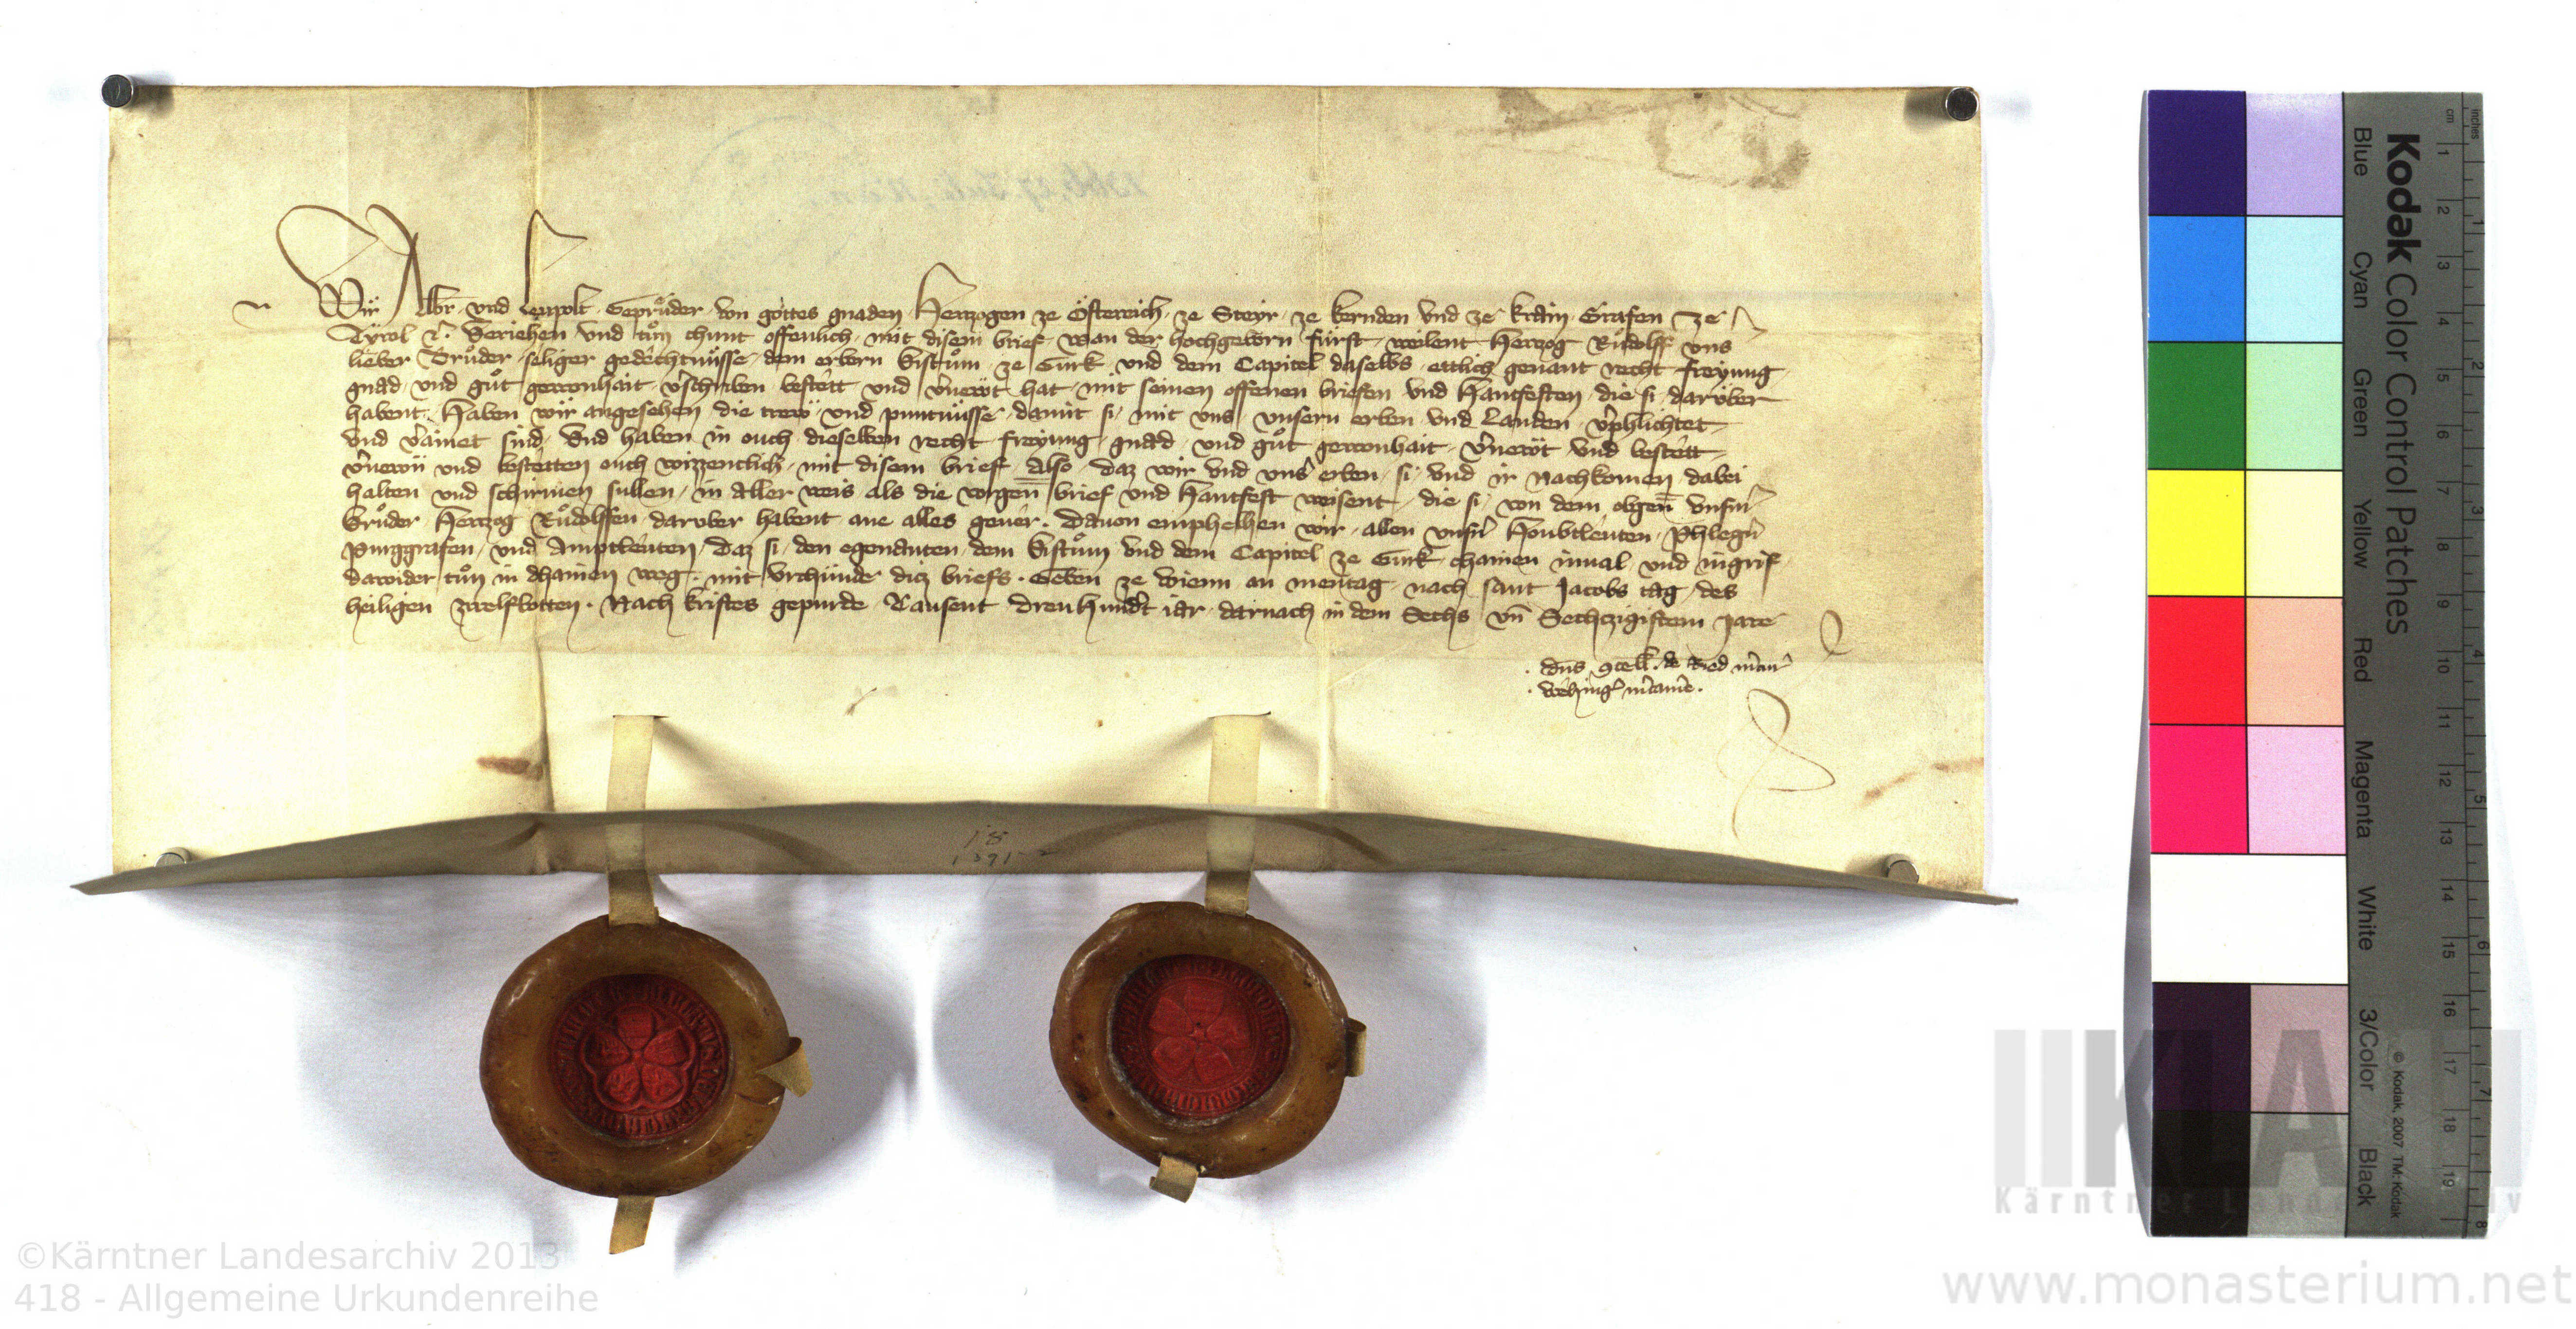 Wir Albr̄ · und Leupolt · Geprůder · von gottes gnaden · Hertzogen ze Österreich · ze Steyr · ze kernden und ze krain · Grafen ze
Tyrol ⁊c̄. Veriehen · und tůn chunt offenlich · mit disem brief · wan der hochgeborn fürst · weilent Hertzog Růdolff uns
lieber Brůder · seliger gedechtnüsse · dem erbern Bistům · ze Gurk und dem Capitel daselbs · ettlich genant recht freyung
gnad · und gůt gewonhait · v̉schriben · bestett und v̉newt hat · mit seinen offenen briefen und Hantfesten · die si · darüber
habent · Haben wir angesehen die trew · und puntnüsse · damit si · mit uns · unsern erben und Landen · v̉phlichtet
und v̉ainet sind · Und haben in ouch dieselben recht · freyung · gnad · und gůt gewonhait · v̉newt und bestett
v̉newn und bestetten ouch wizzentlich · mit disem brief · Also · daz wir und uns̉ erben · si · und ir nachkomen · dabei
halten und schirmen sullen · in aller weis · als die vorgen̄ brief und Hantfest weisent · die si · von dem obgen̄ unsm̄
Brůder · Hertzog Růdolffen · daruber habent ane alles geuer · Dauon emphelhen wir · allen unsn̉ Houbtleuten · Phlegn̉
Purggrafen · und Amptleuten · daz si · den egenanten · dem Bistům und dem Capitel ze Gurk · chainen inual und ingrif
dawider tůn in dhainen weg · mit urchünde dicz briefs · Geben ze wienn an mentag · nach sant Jacobs tag · des
heiligen zwelfbotten · Nach kristes gepurde · Tausent dreuhund̉t iar · darnach in dem Sechs un̄ Sechtzigistem Jare
· dn̄s ꝯcell̄ · de Ried
· Wehing̉
18
©Kärntner Landesarchiv 2013
418 - Allgemeine Urkundenreihe
www.monasterium.net
KLA
Kärntner Landesarchiv
Kodak Color Control Patches
Blue Cyan Green Yellow Red Magenta White 3/Color Black
© Kodak, 2007 TM: Kodak
inches 1 2 3 4 5 6 7 8
cm 1 2 3 4 5 6 7 8 9 10 11 12 13 14 15 16 17 18 19